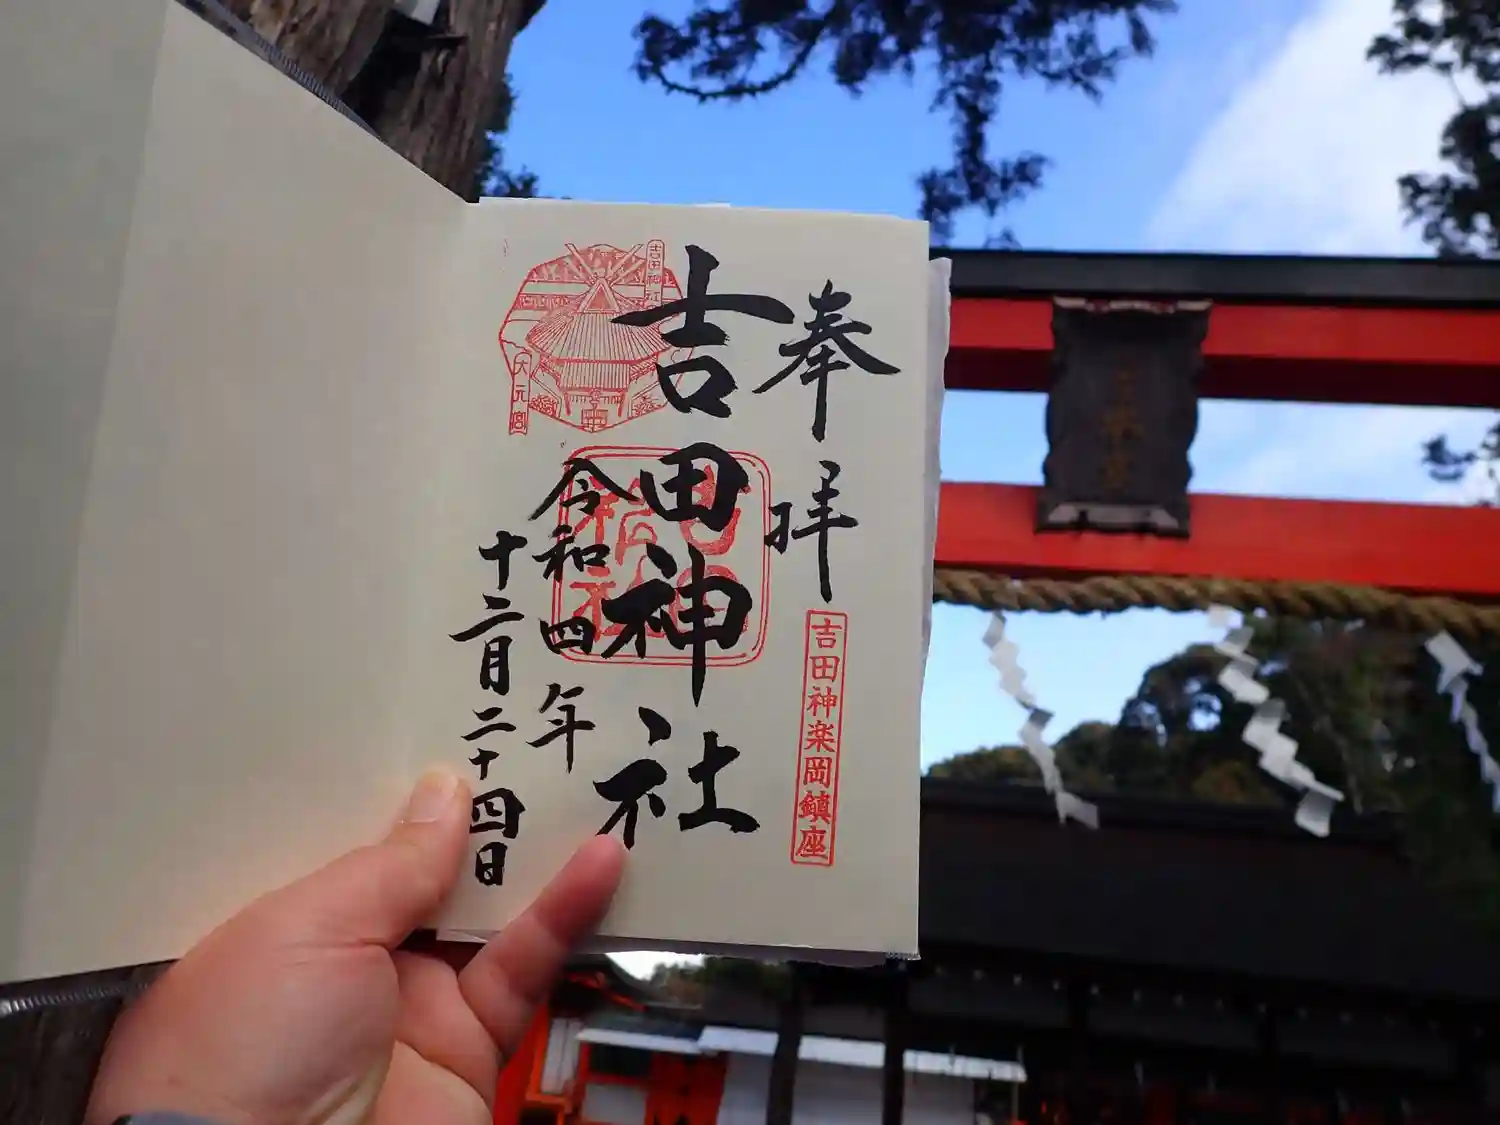 奉拝
吉田神楽岡鎮座
吉田神社
吉田神社
令和四年
十二月二十四日
大元宮